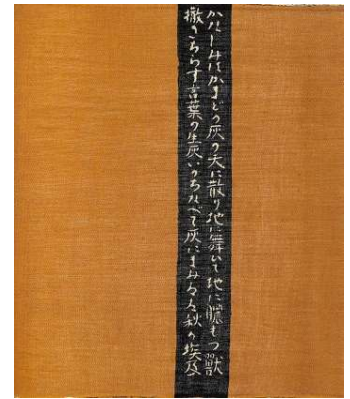 かなしみはかまどの灰の天に散り地に舞いて地に膿もつ獣
撒きちらす言葉の生灰いのちなべて灰にまみるる秋の埃及